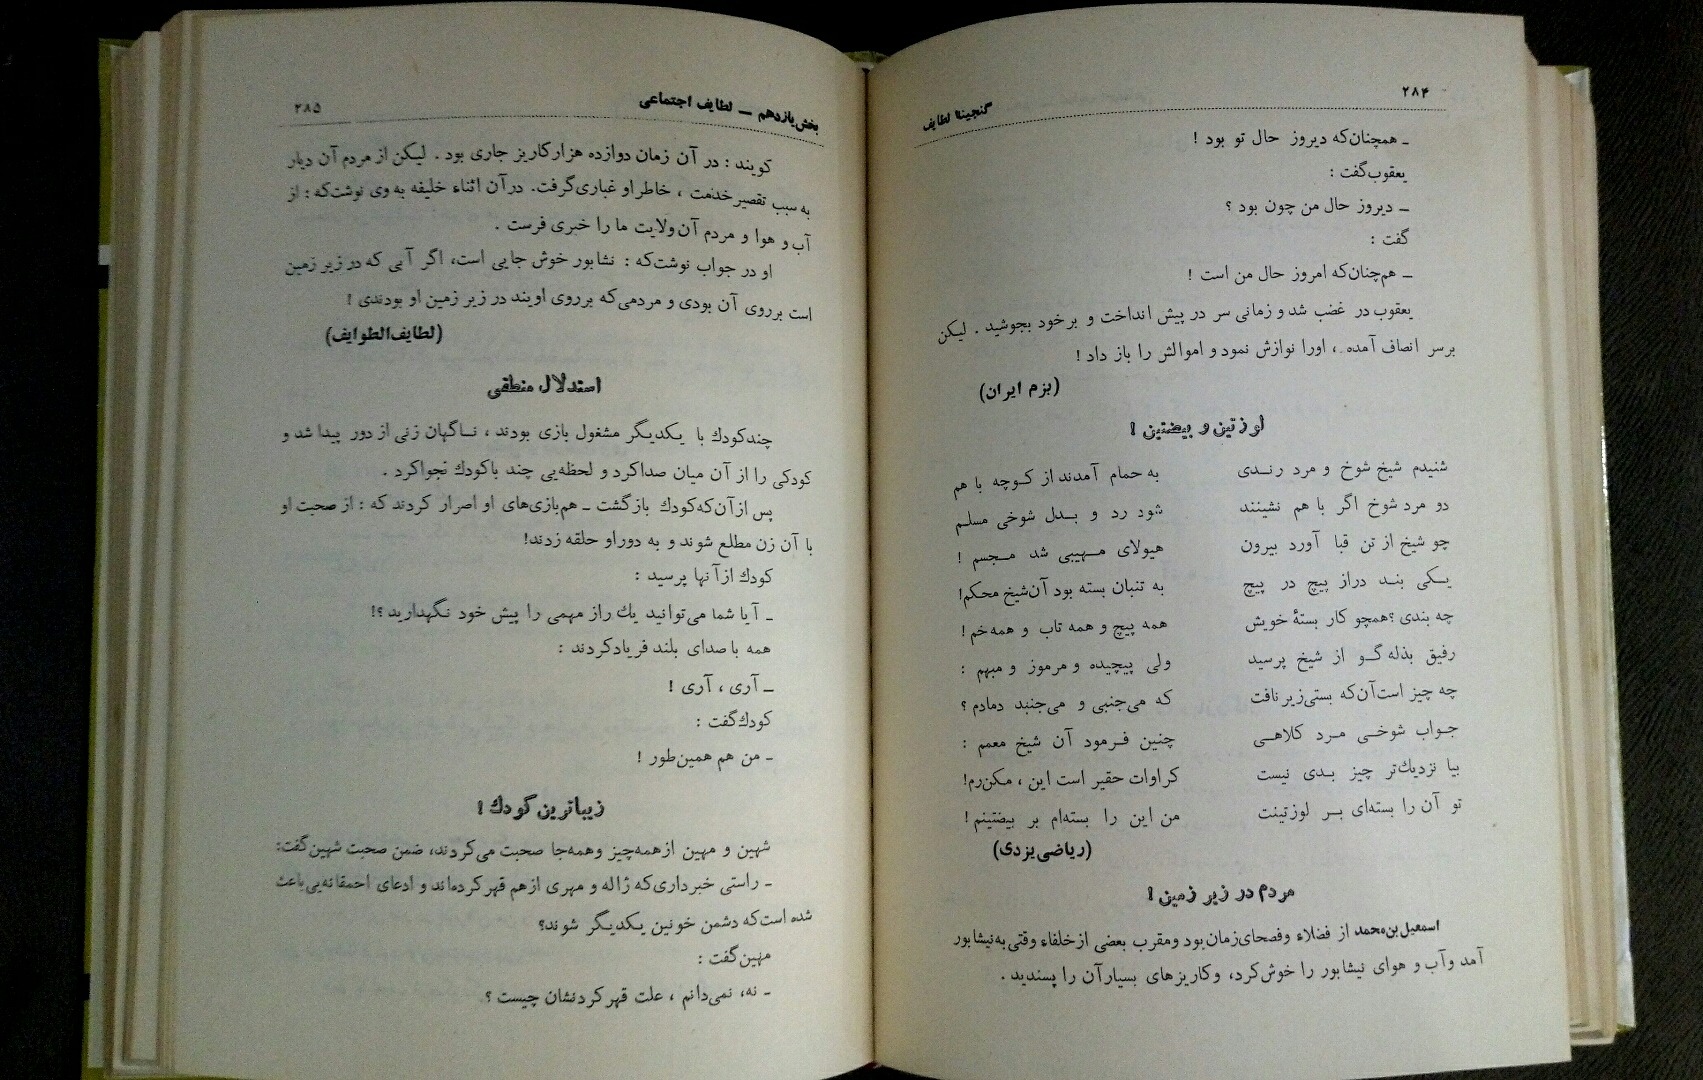 ۲۸۴
گنجینهٔ لطایف
ـ همچنان‌که دیروز حال تو بود !
یعقوب‌گفت :
ـ دیروز حال من چون بود ؟
گفت :
ـ هم‌چنان‌که امروز حال من است !
یعقوب در غضب شد و زمانی سر در پیش انداخت و برخود بجوشید . لیکن
برسر انصاف آمده ، اورا نوازش نمود و اموالش را باز داد !
(بزم ایران)
لوزتین و بیضتین !
شنیدم شیخ شوخ و مرد رنـدی به حمام آمدند از کـوچه با هم
دو مرد شوخ اگر با هم نشینند شود رد و بـدل شوخی مسلـم
چو شیخ از تن قبا آورد بیرون هیولای مـهیبی شد مـجسم !
یـکی بنـد دراز پیچ در پیچ به تنبان بسته بود آن‌شیخ محکم!
چه بندی ؟همچو کار بستهٔ خویش همه پیچ و همه تاب و همه‌خم !
رفیق بذله‌گـو از شیخ پرسید ولی پیچیده و مرموز و مبهم :
چه چیز است‌آن‌که بستی‌زیر نافت که می‌جنبی و می‌جنبد دمادم ؟
جـواب شوخـی مـرد کلاهـی چنین فـرمود آن شیخ معمم :
بیا نزدیك‌تر چیز بـدی نیست کراوات حقیر است این ، مکن‌رم!
تو آن را بسته‌ای بـر لوزتینت من این را بسته‌ام بر بیضتینم !
(ریاضی‌یزدی)
مردم در زیر زمین !
اسمعیل‌بن‌محمد از فضلاء وفصحای‌زمان‌بود ومقرب بعضی ازخلفاء وقتی به‌نیشابور
آمد وآب و هوای نیشابور را خوش‌کرد، وکاریزهای بسیارآن را پسندید .
بخش‌یازدهم ـ لطایف اجتماعی
۲۸۵
گویند : در آن زمان دوازده هزارکاریز جاری بود . لیکن از مردم آن دیار
به سبب تقصیرخدمت ، خاطراو غباری‌گرفت. درآن اثناء خلیفه به‌وی نوشت‌که : از
آب و هوا و مردم آن‌ولایت ما را خبری فرست .
او در جواب نوشت‌که : نشابور خوش جایی است، اگر آبی که در زیر زمین
است برروی آن بودی و مردمی‌که برروی اویند در زیر زمین او بودندی !
(لطایف‌الطوایف)
استدلال منطقی
چندکودك با یکدیگر مشغول بازی بودند ، نـاگهان زنی از دور پیدا شد و
کودکی را از آن میان صداکرد و لحظه‌یی چند باکودك نجواکرد .
پس ازآن‌که‌کودك بازگشت ـ هم‌بازی‌های او اصرار کردند که : از صحبت او
با آن زن مطلع شوند و به دوراو حلقه زدند!
کودك ازآنها پرسید :
ـ آیا شما می‌توانید یك راز مهمی را پیش خود نگهدارید ؟!
همه با صدای بلند فریادکردند :
ـ آری ، آری !
کودك‌گفت :
ـ من هم همین‌طور !
زیباترین کودك !
شهین و مهین ازهمه‌چیز وهمه‌جا صحبت می‌کردند، ضمن صحبت شهین‌گفت:
ـ راستی خبرداری‌که ژاله و مهری ازهم قهرکرده‌اند و ادعای احمقانه‌یی‌باعث
شده است‌که دشمن خونین یکدیگر شوند؟
مهین‌گفت :
ـ نه، نمی‌دانم ، علت قهرکردنشان چیست ؟